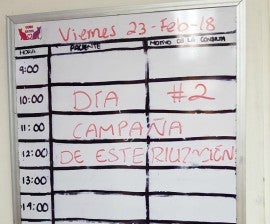 Viernes 23-Feb-18
HORA PACIENTE MOTIVO DE LA CONSULTA
9:00
10:00 DIA #2
11:00 CAMPAÑA
12:00 DE ESTERILIZACIÓN
13:00
14:00